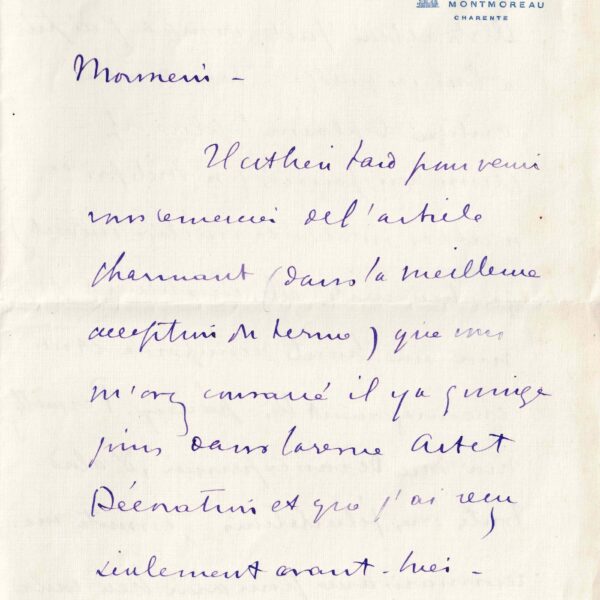 MONTMOREAU
CHARENTE
Monsieur -
Il est bien tard pour venir
vous remercier de l'article
charmant (dans la meilleure
acception du terme) que vous
m'avez consacré il y a quinze
jours dans la revue Art et
Décoration et que j'ai reçu
seulement avant-hier -